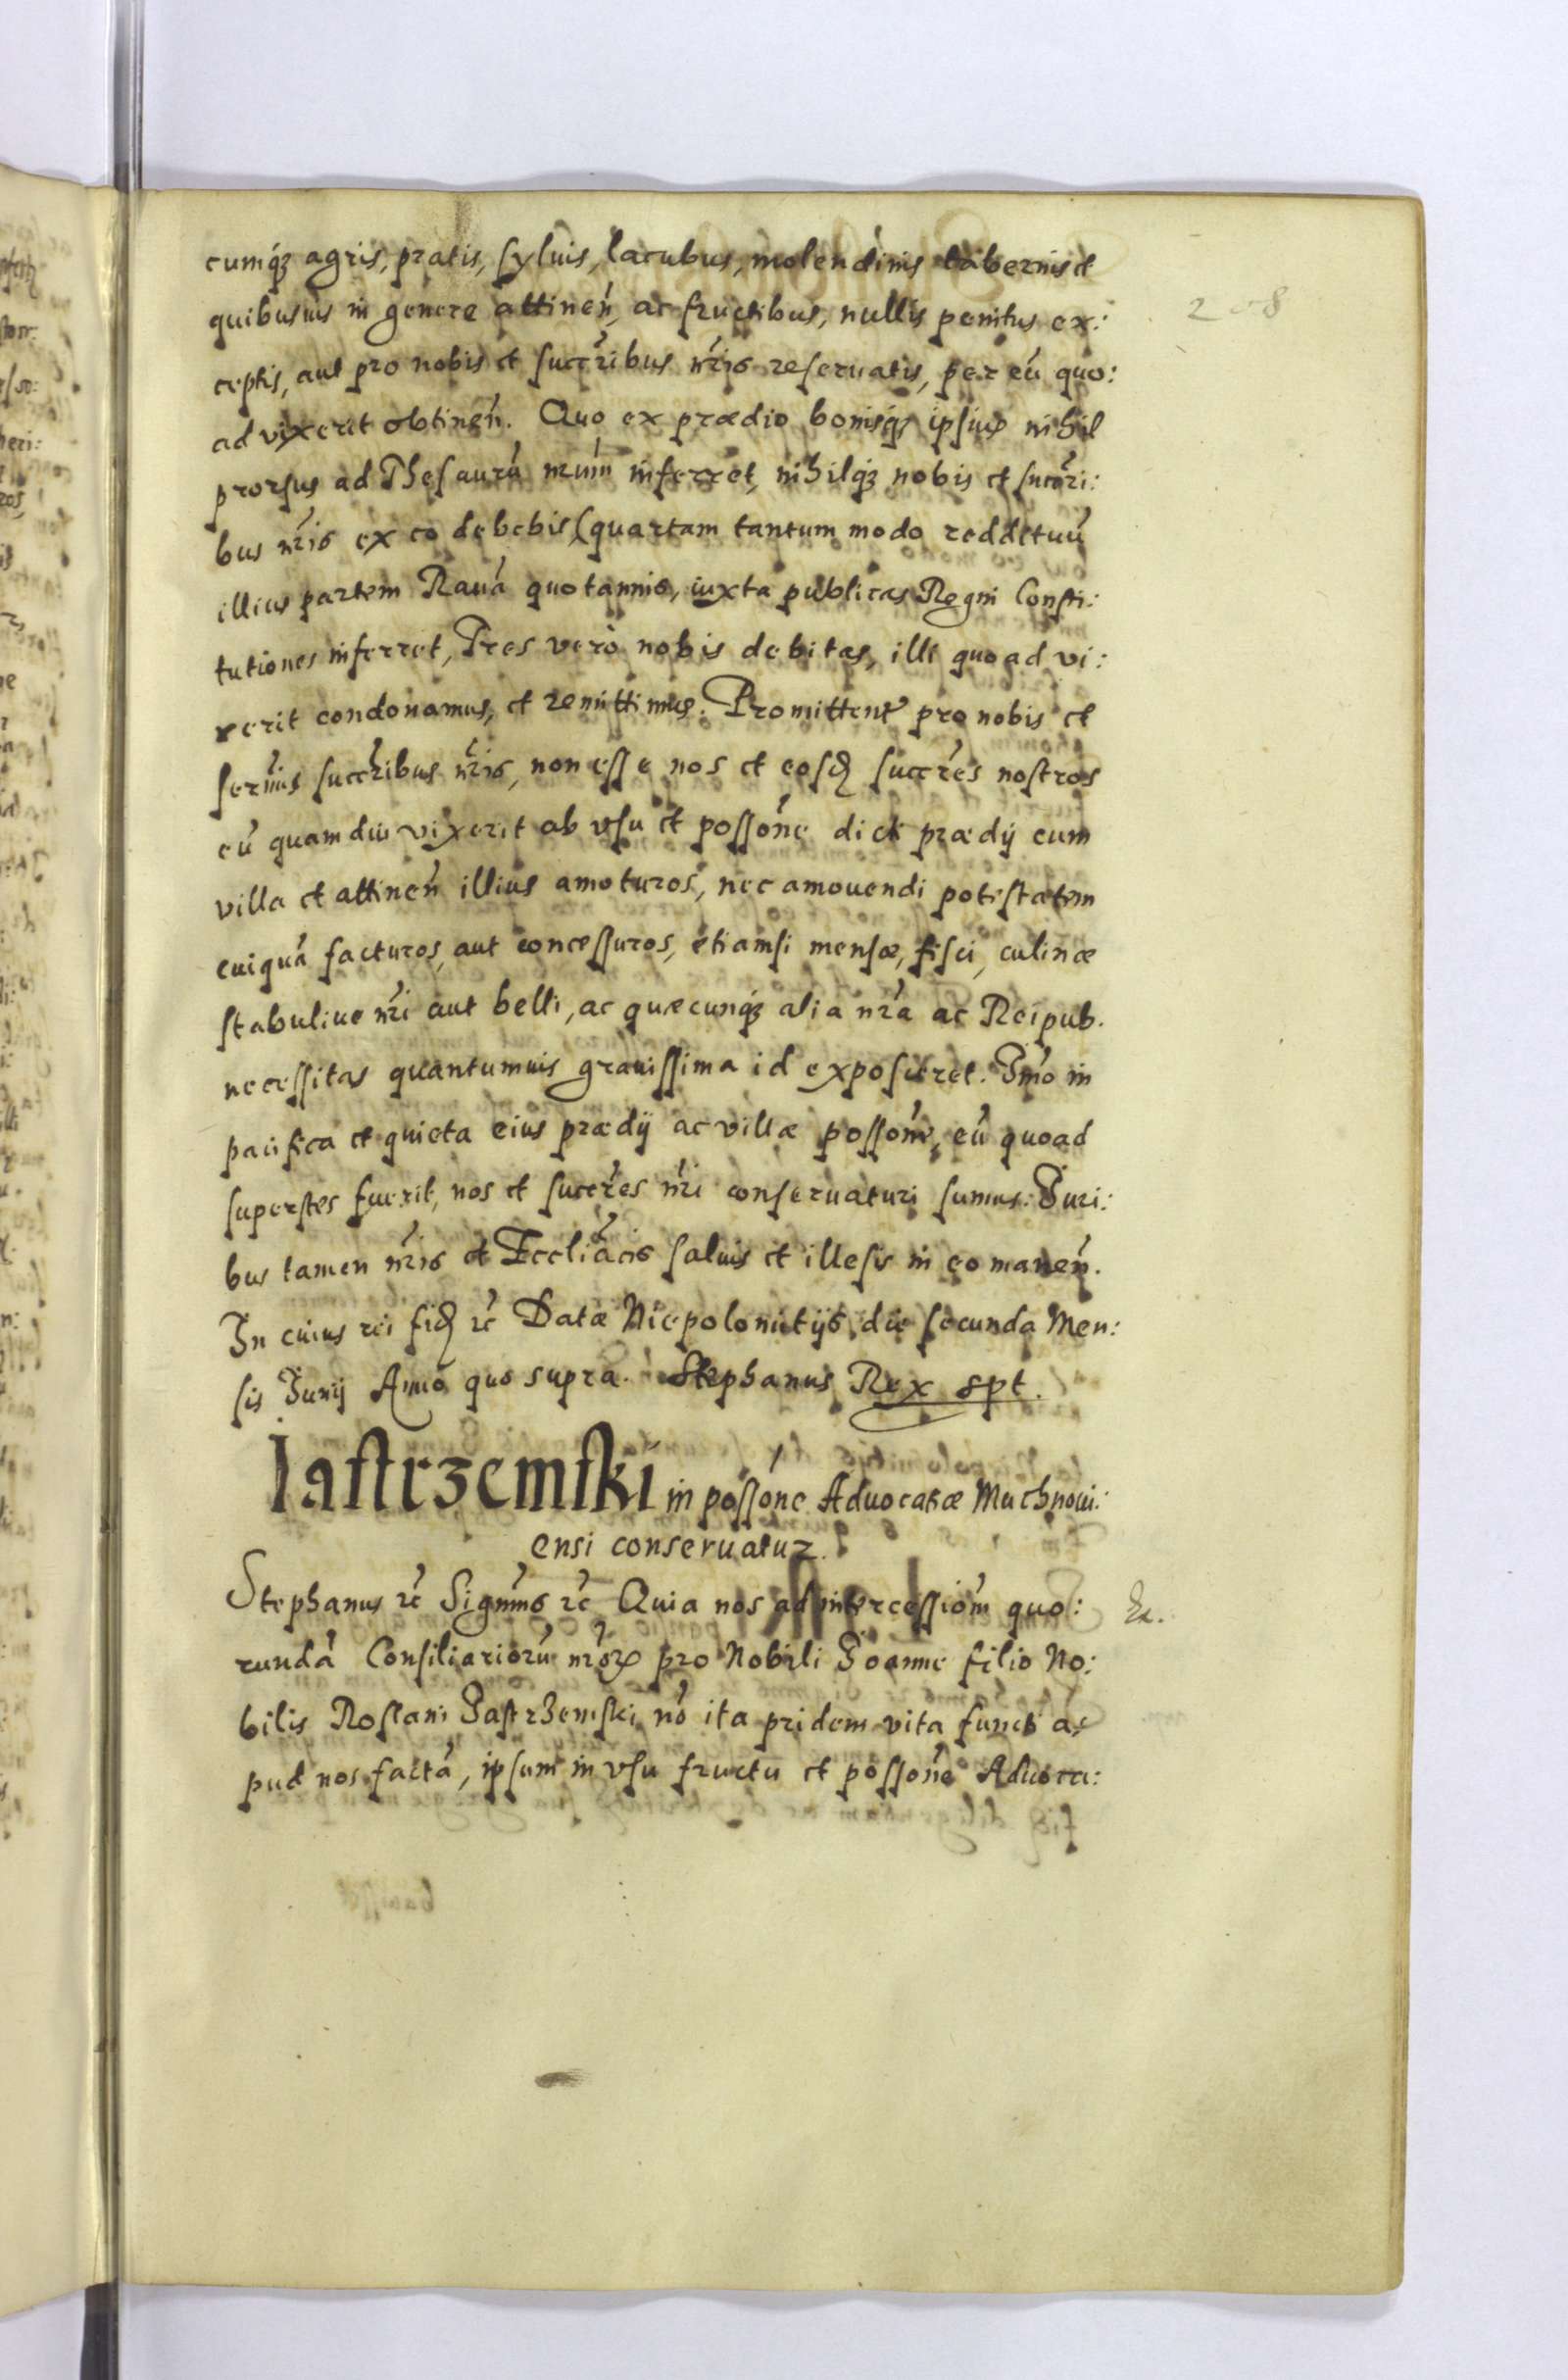 cumq3 agris, pratis, syluis, lacubus, molendinis tabernis et
quibusuis in genere attineń, ac fructibus, nullis penitus ex:
ceptis, aut pro nobis et succr̃ibus nr̃is reseruatis, per eũ quo:
ad vixerit obtineń. Quo ex prædio bonisq3 ipsius nihil
prorsus ad Thesaurũ nrum̃ inferret, nihilq3 nobis et succr̃i:
bus nr̃is ex eo debebis (quartam tantum modo reddituũ
illius partem Rauã quotannis, iuxta publicas Regni Consti:
tutiones inferret, Tres verò nobis debitas, illi quoad vi:
xerit condonamus, et remittimus. Promitteń pro nobis et
sermis̃ succr̃ibus nr̃is, non esse nos et eosd̃ succr̃es nostros
eũ quamdiu vixerit ab vsu et possõne dicti prædij cum
villa et attineń illius amoturos, nec amouendi potestatem
cuiquã facturos, aut concessuros, etiamsi mensæ, fisci, culinæ
stabuliue nr̃i aut belli, ac quæcunq3 alia nr̃a ac Reipub.
necessitas quantumuis grauissima id exposceret. Imò in
pacifica et quieta eius prædij ac villæ possõne, eũ quoad
superstes fuerit, nos et succr̃es nr̃i conseruaturi sumus: Iuri:
bus tamen nr̃is et Ecclĩacis saluis et illesis in eo maneń.
In cuius rei fid̃ rc̃ Datæ Niepolomitijs, die secunda Men:
sis Iunij Anno quo supra. Stephanus Rex spt.
208
Iastrzemski in possõne Aduocatiæ Muchnoui:
ensi conseruatur.
Stephanus rc̃ Signm̃s rc̃ Quia nos ad intercessiom̃ quo:
rundã Consiliariorũ nr̃or pro Nobili Ioanne filio No:
bilis Rosłani Iastrzemski nõ ita pridem vita functi a:
pud nos factã, ipsum in vsu fructu et possõne Aduoca: